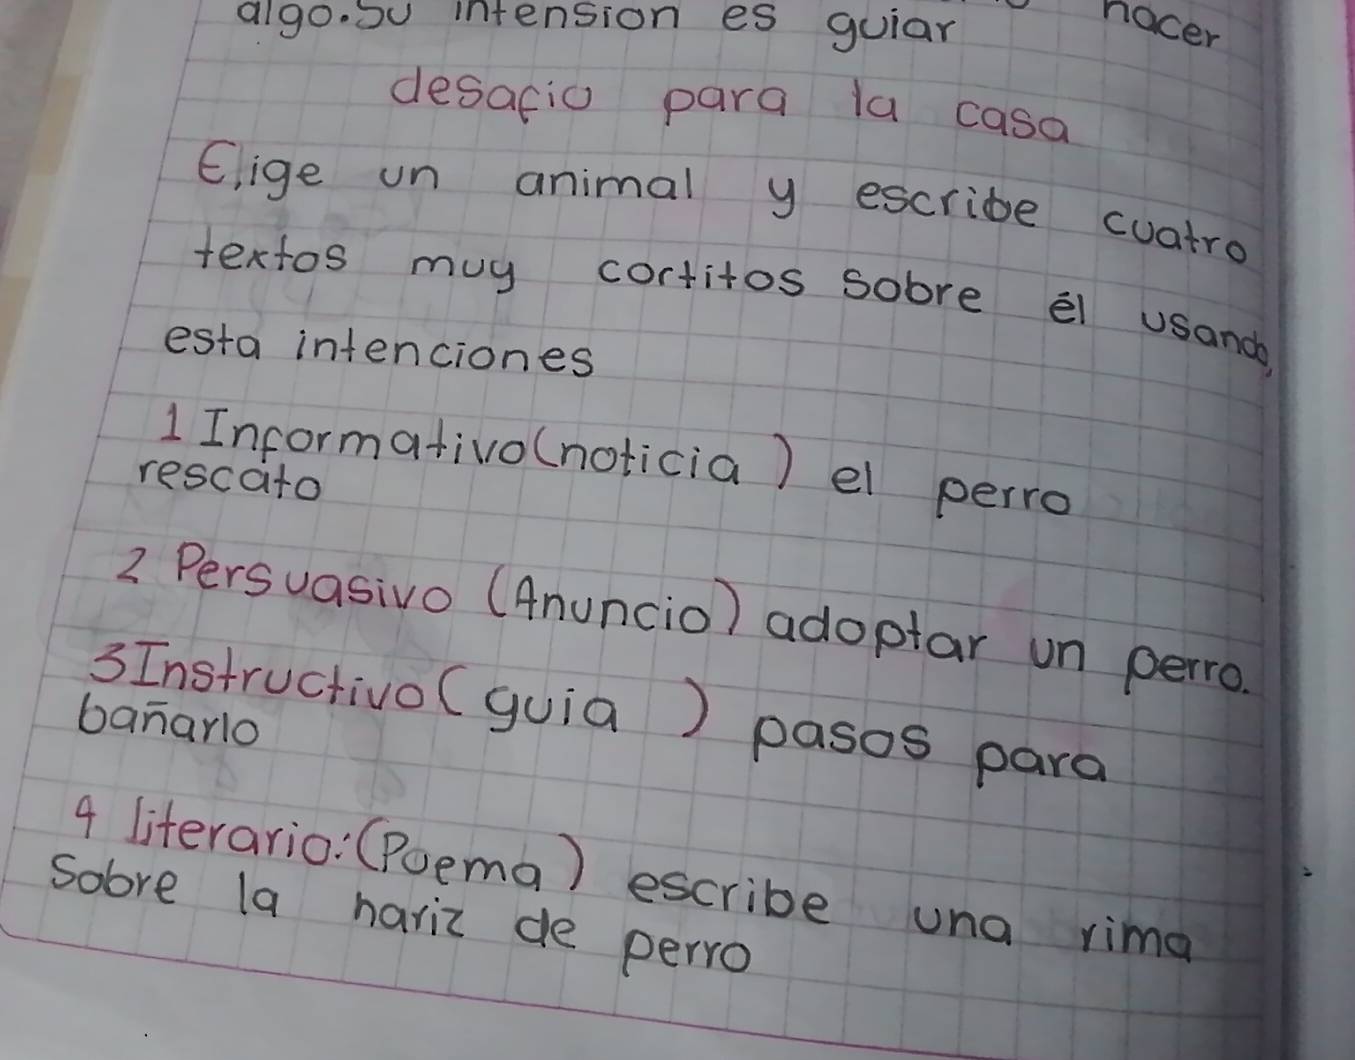 algo. Su intension es guiar hacer
desafio para la casa
Elige un animal y escribe cuatro
textos muy cortitos sobre él usando,
esta intenciones
1 Informativo (noticia) el perro
rescato
2 Persuasivo (Anuncio) adoptar un perro.
3 Instructivo (guia) pasos para
bañarlo
4 literario: (Poema) escribe una rima
Sobre la nariz de perro